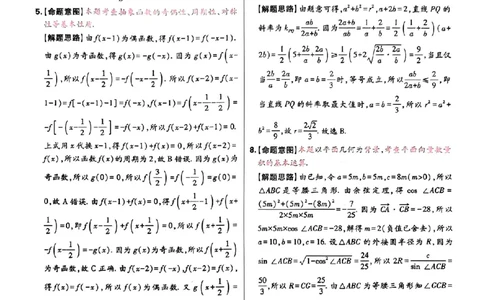 5.【命题意图】本题考查抽象函数的奇偶性、周期性、对称
性等基本性质.
【解题思路】由f(x-1)为偶函数,得f(x-1)=f(-x-1).
由g(x)为奇函数,得g(x)=-g(-x). 因为g(x)=f(x-
1/2),所以f(x-1/2)=-f(-x-1/2). 所以f(x-2)=f(x-
1-1)=f[-(x-1)-1]=f(-x),f(x-1)=f(x-1/2-1/2)=
-f[-(x-1/2)-1/2]=-f(-x),所以f(x-2)+f(x-1)=0.
上式用x代换x-1,得f(x-1)+f(x)=0,所以f(x-2)=
f(x),所以函数f(x)的周期为2,故B错误. 因为g(x)为
奇函数,所以g(0)=0,所以f(3/2)=f(-1/2)=g(0)=
0,故A错误. 由f(x-1)+f(x)=0,得f(x+1/2-1)+f(x+
1/2)=0,即f(x-1/2)+f(x+1/2)=0,所以f(x+1/2)=
-f(x-1/2)=-g(x). 因为g(x)为奇函数,所以f(x+1/2)
为奇函数,故C正确. 由f(x-2)=f(-x),f(x-2)=f(x),
得f(x)=f(-x),所以f(x)为偶函数. 又g(x+1/2)=
【解题思路】由题意可得,a²+b²=r²,a+2b=2,直线PQ的
斜率为k_PQ=ab/(2a+b). 因为(2a+b)/ab=1/a+2/b=1/2(1/a+2/b)(a+
2b)=1/2(5+2b/a+2a/b)≥1/2(5+2√(2b/a·2a/b))=9/2,当且仅
当2b/a=2a/b,即a=b=2/3时,等号成立,所以ab/(2a+b)≤2/9,即
当直线PQ的斜率取最大值时,a=b=2/3,所以r²=a²+
b²=8/9,故r=2√2/3. 故选B.
8.【命题意图】本题以平面几何为背景,考查平面向量数量
积的基本运算.
【解题思路】由已知,令a=5m,b=5m,c=8m(m>0),所以
△ABC是等腰三角形. 由余弦定理,得 cos ∠ACB =
((5m)²+(5m)²-(8m)²)/(2×5m×5m)=-7/25. 因为CA·CB=-28,所以
5m×5m×cos ∠ACB=-28,解得m=2(负值已舍去),所以
a=10,b=10,c=16. 设△ABC的外接圆半径为R,因为
sin ∠ACB=√(1-cos²∠ACB)=24/25,所以2R=c/sin ∠ACB=
50/3,所以R=CG=25/3. 由△ABC为等腰三角形知∠GCB=